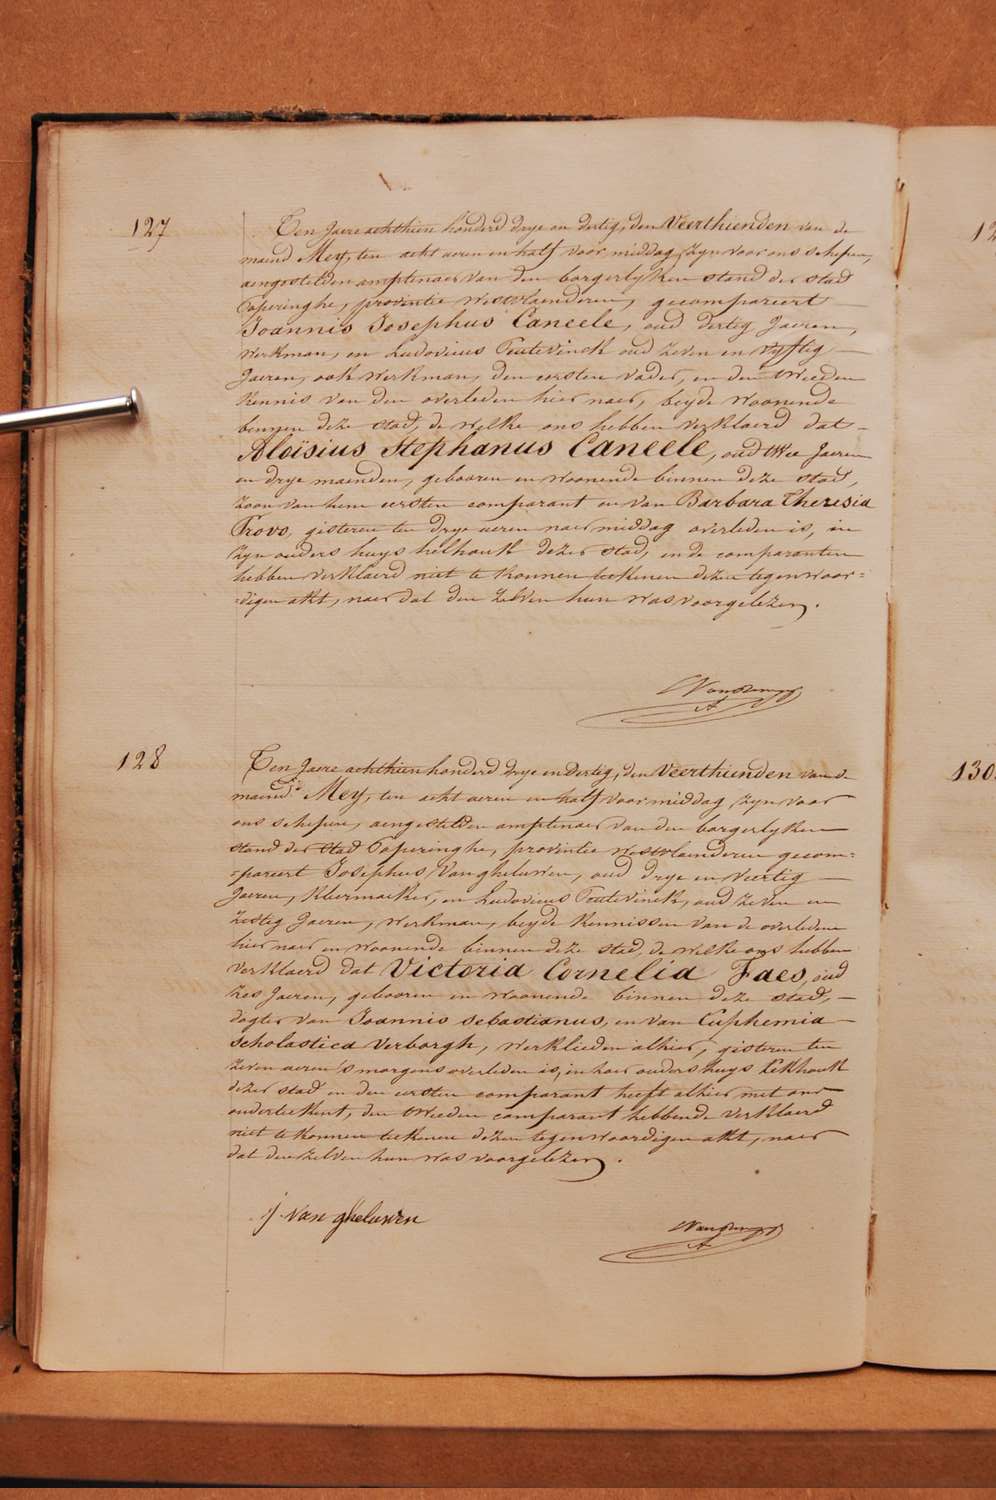 127
Ten Jaere achthien honderd drye en dertig, den Veerthienden van de
maend Mey, ten acht ueren en half voor middag, zyn voor ons schepen,
aengestelden amptenaer van den borgerlyken stand der stad
Poperinghe, provintie Westvlaenderen, gecompareert
Joannis Josephus Caneele, oud dertig Jaeren,
Werkman, en Ludovicus Toutevinck oud zeven en vyftig
Jaeren, ook werkman, den eersten vader, en den tweeden
kennis van den overleden hier naer, beyde woonende
binnen deze stad, de welke ons hebben verklaerd dat
Aloïsius Stephanus Caneele, oud twee Jaeren
en drye maenden, gebooren en woonende binnen deze stad,
zoon van hem eersten comparant en van Barbara Theresia
Provo, gisteren ten drye ueren naermiddag overleden is, in
zyn ouders huys helhouk dezer stad, en de comparanten
hebben verklaerd niet te konnen teekenen dezen tegenwoor=
=digen akt, naer dat den zelven hun was voorgelezen.
128
Ten Jaere achthien honderd drye en dertig, den Veerthienden van de
maend Mey, ten acht ueren en half voormiddag, zyn voor
ons schepen, aengestelden amptenaer van den borgerlyken
stand der stad Poperinghe, provintie Westvlaenderen gecom=
=pareert Josephus Vangheluwen, oud drye en veertig
Jaeren, kleermaeker, en Ludovicus Toutevinck, oud zeven en
zestig Jaeren, werkman, beyde kennissen van de overledene
hier naer en woonende binnen deze stad, de welke ons hebben
verklaerd dat Victoria Cornelia Faes, oud
zes Jaeren, gebooren en woonende binnen deze stad,
dogter van Joannis sebastianus, en van Euphemia
scholastica Verborgh, werklieden alhier, gisteren ten
zeven ueren 's morgens overleden is, in haer ouders huys Eekhouk
dezer stad en den eersten comparant heeft alhier met ons
onderteekent, den tweeden comparant hebbende verklaerd
niet te konnen teekenen dezen tegenwoordigen akt, naer
dat den zelven hun was voorgelezen.
j. van gheluwen
130.